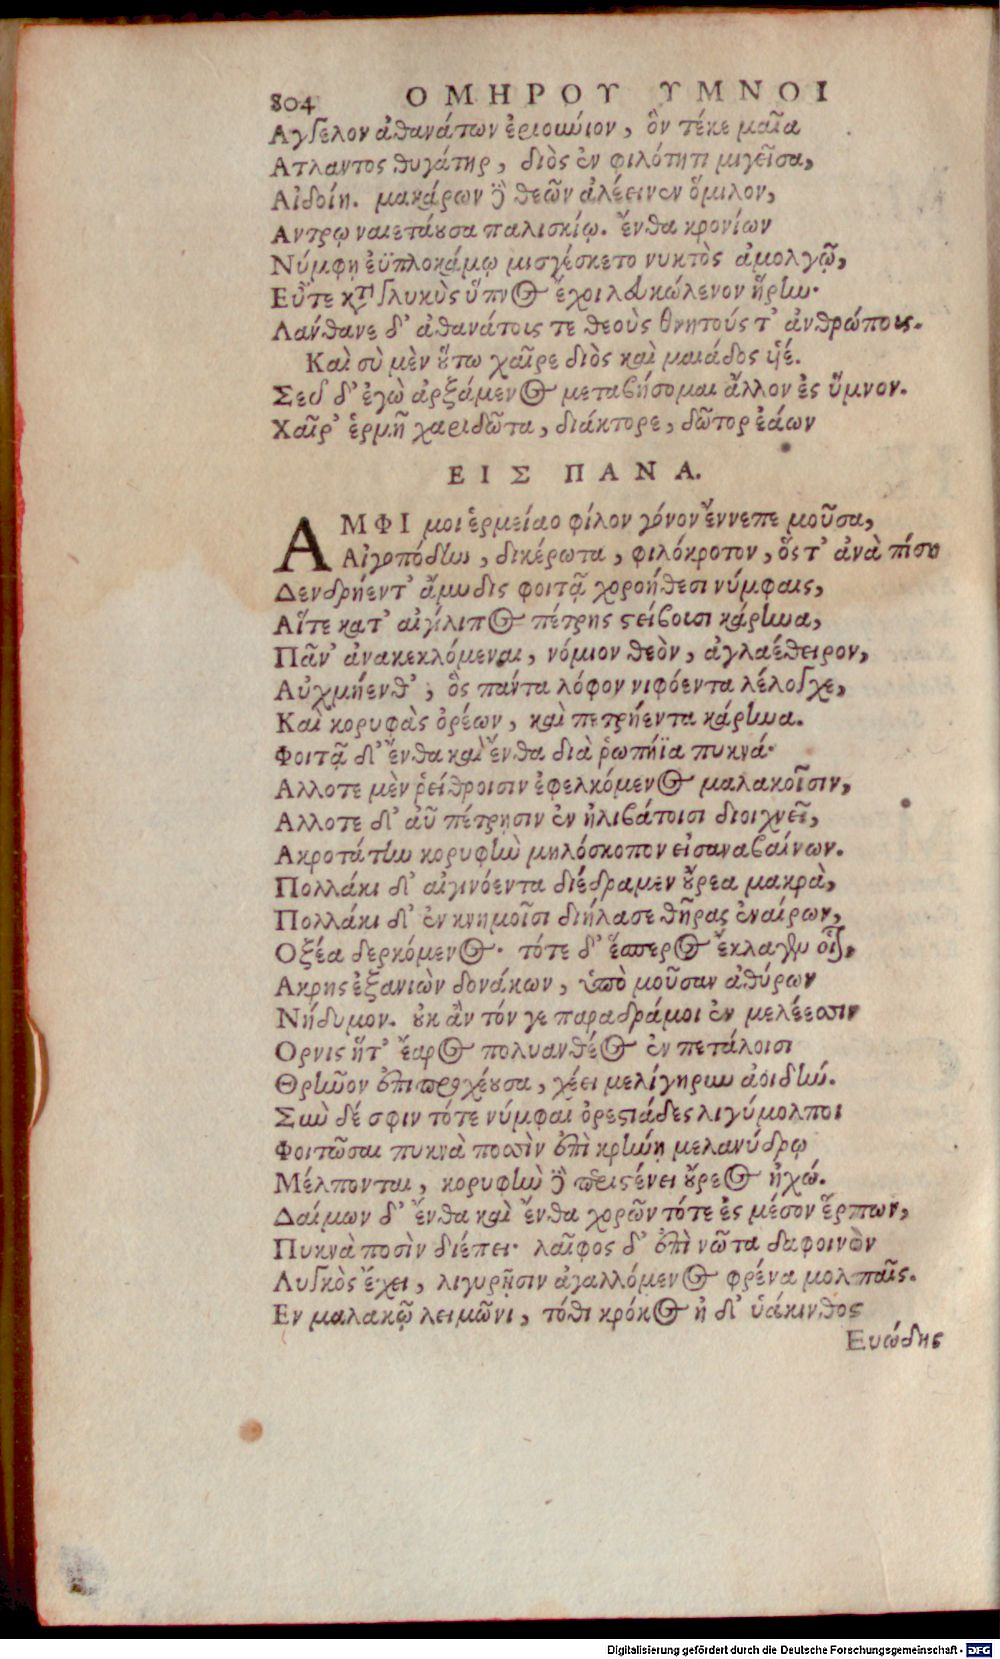 804 ΟΜΗΡΟΥ ΥΜΝΟΙ
Αγγελον ἀθανάτων ἐριούνιον, ὃν τέκε μαῖα
Ατλαντος θυγάτηρ, διὸς ἐν φιλότητι μιγεῖσα,
Αἰδοίη. μακάρων δὲ θεῶν ἀλέεινεν ὅμιλον,
Αντρῳ ναιετάουσα παλισκίῳ. ἔνθα κρονίων
Νύμφῃ ἐϋπλοκάμῳ μισγέσκετο νυκτὸς ἀμολγῷ,
Εὖτε κατὰ γλυκὺς ὕπνος ἔχοι λευκώλενον ἥρην·
Λάνθανε δ' ἀθανάτοις τε θεοὺς θνητούς τ' ἀνθρώποις.
Καὶ σὺ μὲν οὕτω χαῖρε διὸς καὶ μαιάδος ὑιέ.
Σεῦ δ' ἐγὼ ἀρξάμενος μεταβήσομαι ἄλλον ἐς ὕμνον.
Χαῖρ' ἑρμῆ χαριδῶτα, διάκτορε, δῶτορ ἐάων
ΕΙΣ ΠΑΝΑ.
ΑΜΦΙ μοι ἑρμείαο φίλον γόνον ἔννεπε μοῦσα,
Αἰγοπόδην, δικέρωτα, φιλόκροτον, ὅς τ' ἀνὰ πίση
Δενδρήεντ' ἄμυδις φοιτᾷ χοροήθεσι νύμφαις,
Αἵτε κατ' αἰγίλιπος πέτρης στείβουσι κάρηνα,
Πᾶν' ἀνακεκλόμεναι, νόμιον θεὸν, ἀγλαέθειρον,
Αὐχμήενθ', ὃς πάντα λόφον νιφόεντα λέλογχε,
Καὶ κορυφὰς ὀρέων, καὶ πετρήεντα κάρηνα.
Φοιτᾷ δ' ἔνθα καὶ ἔνθα διὰ ῥωπήϊα πυκνά·
Αλλοτε μὲν ῥείθροισιν ἐφελκόμενος μαλακοῖσιν,
Αλλοτε δ' αὖ πέτρῃσιν ἐν ἠλιβάτοισι διοιχνεῖ,
Ακροτάτην κορυφὴν μηλόσκοπον εἰσαναβαίνων.
Πολλάκι δ' αἰγινόεντα διέδραμεν οὔρεα μακρὰ,
Πολλάκι δ' ἐν κνημοῖσι διήλασε θῆρας ἐναίρων,
Οξέα δερκόμενος· τότε δ' ἕσπερος ἔκλαγεν οἶος,
Ακρης ἐξανιὼν δονάκων, ὑπὸ μοῦσαν ἀθύρων
Νήδυμον. οὐκ ἂν τόν γε παραδράμοι ἐν μελέεσσιν
Ορνις ἥτ' ἔαρος πολυανθέος ἐν πετάλοισι
Θρῆνον ἐπιπροχέουσα, χέει μελίγηρυν ἀοιδήν.
Σὺν δέ σφιν τότε νύμφαι ὀρεστιάδες λιγύμολποι
Φοιτῶσαι πυκνὰ ποσσὶν ἐπὶ κρήνῃ μελανύδρῳ
Μέλπονται, κορυφὴν δὲ περιστένει οὔρεος ἠχώ.
Δαίμων δ' ἔνθα καὶ ἔνθα χορῶν τότε ἐς μέσον ἕρπων,
Πυκνὰ ποσὶν διέπει· λαῖφος δ' ἐπὶ νῶτα δαφοινὸν
Λυγκὸς ἔχει, λιγυρῇσιν ἀγαλλόμενος φρένα μολπαῖς.
Εν μαλακῷ λειμῶνι, τόθι κρόκος ἠ δ' ὑάκινθος
Ευώδης
Digitalisierung gefördert durch die Deutsche Forschungsgemeinschaft - DFG